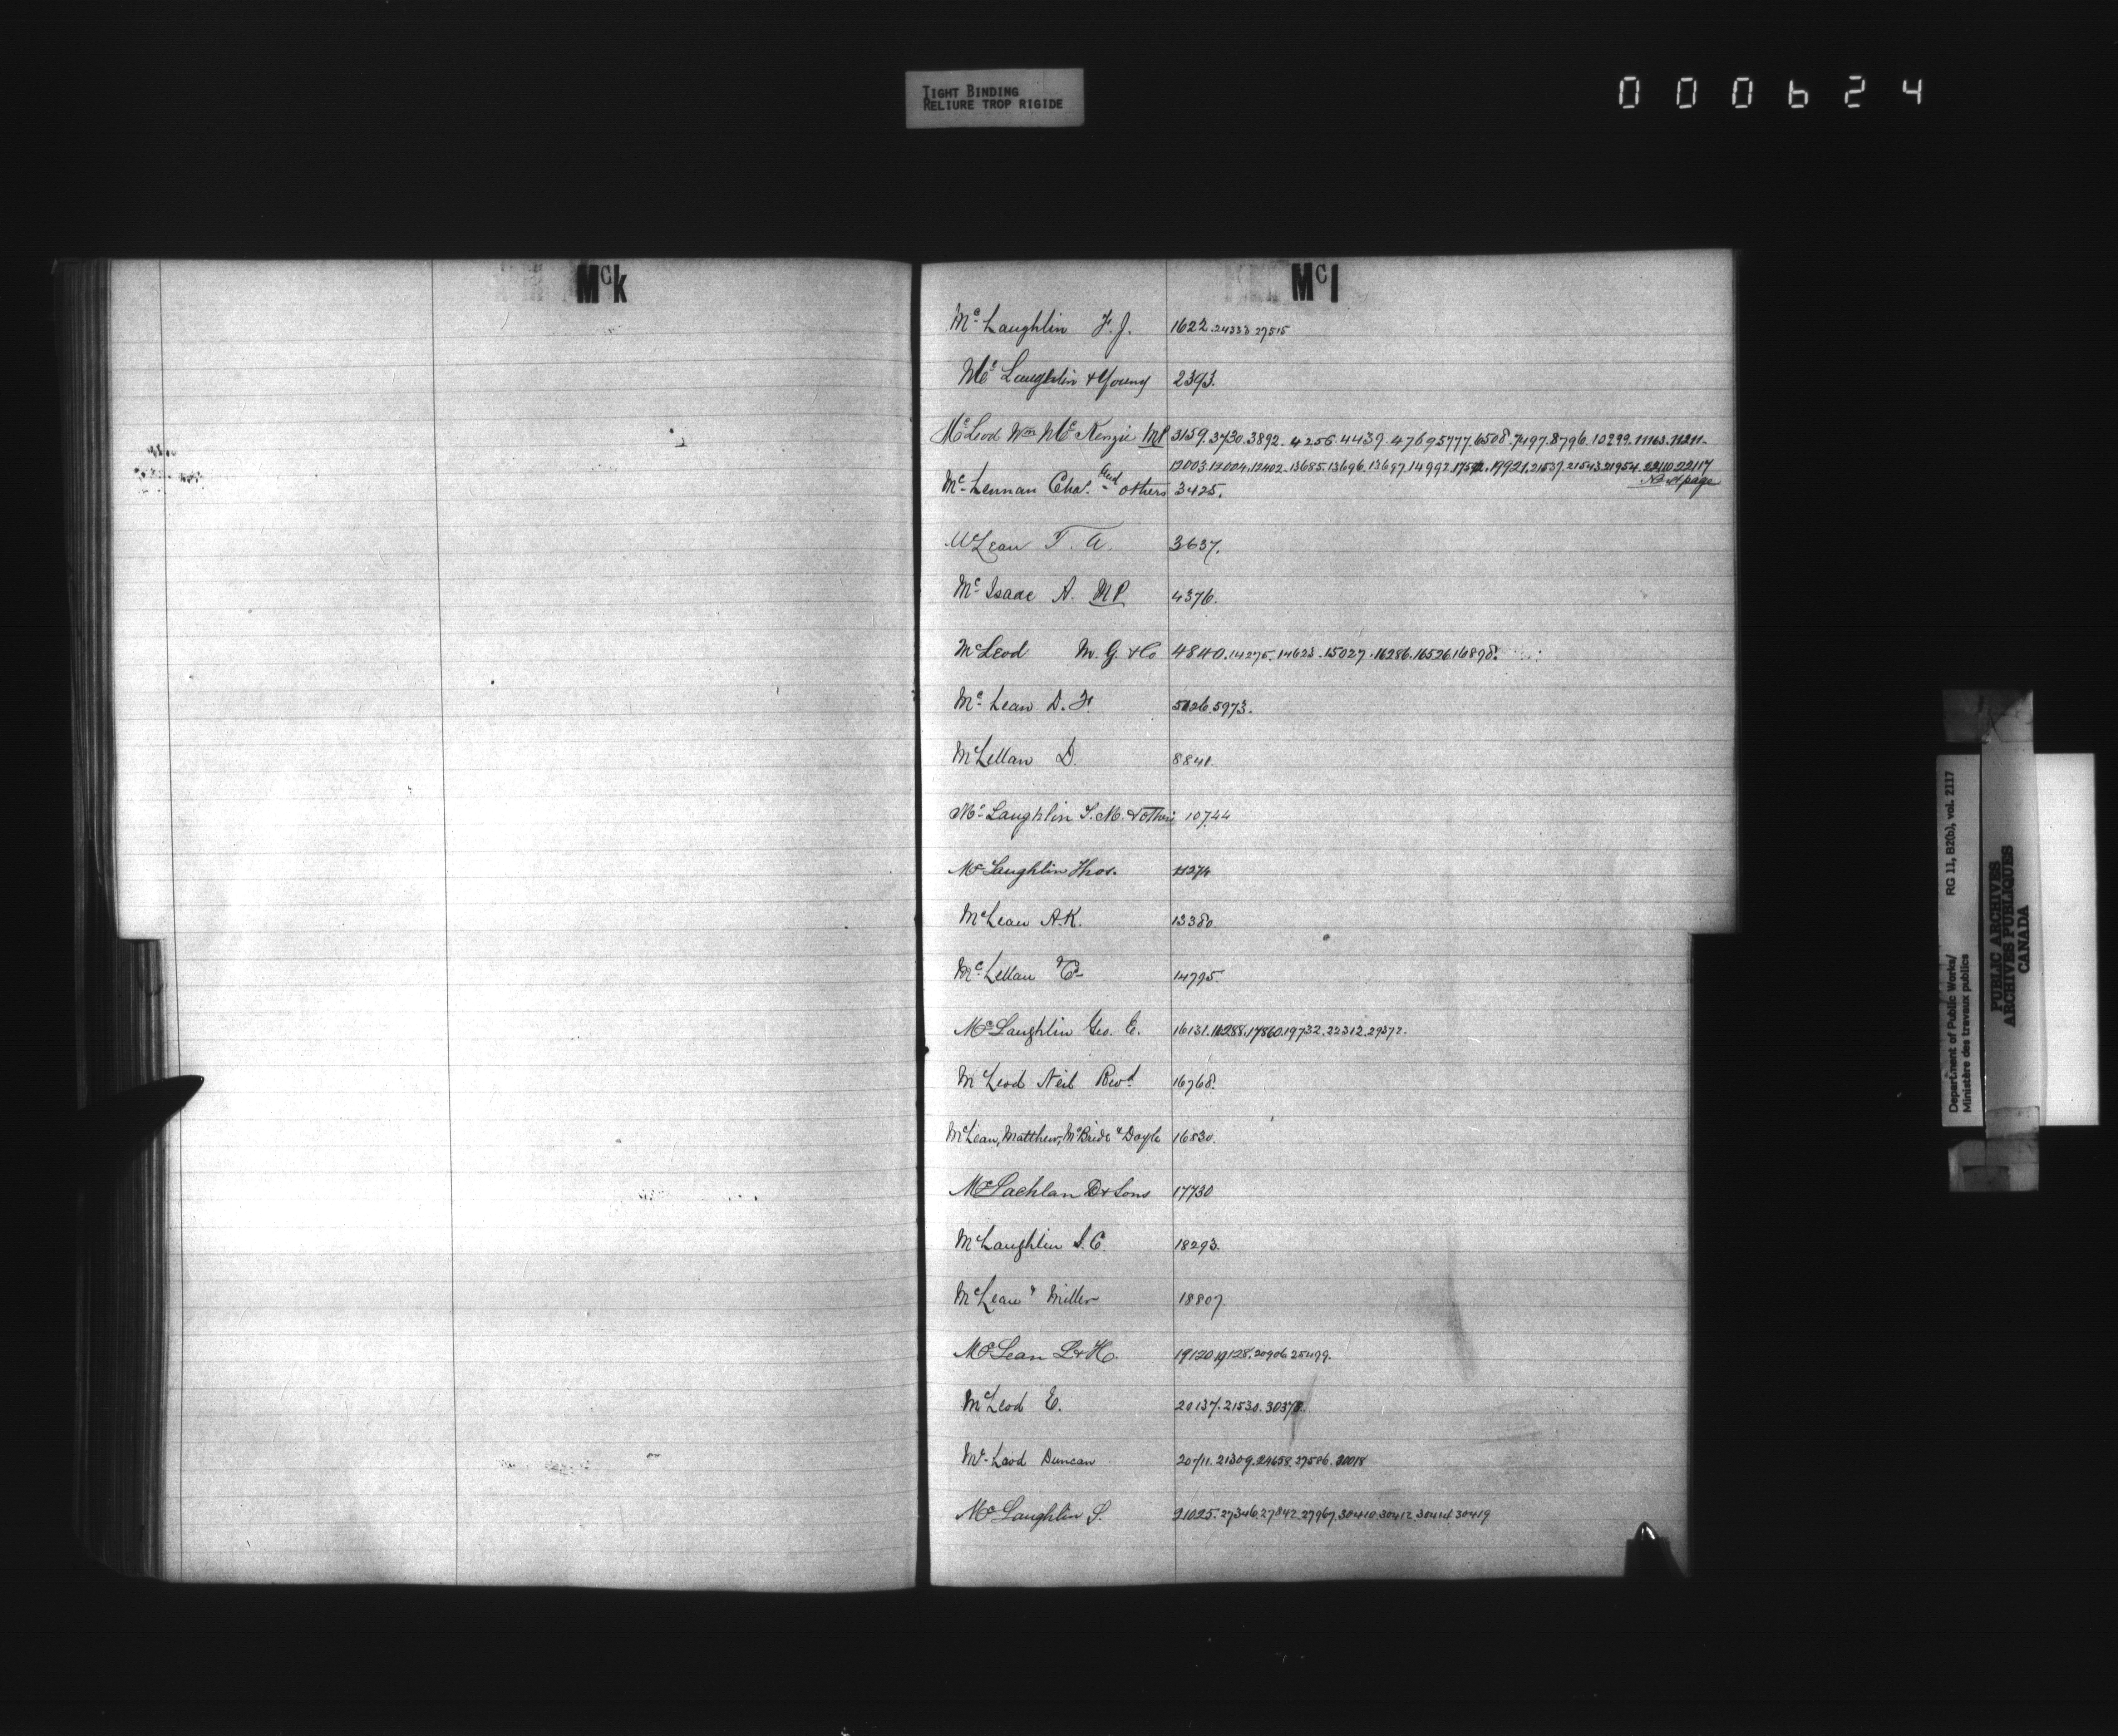 TIGHT BINDING
RELIURE TROP RIGIDE
000624
Mck
McLaughlin F. J. 1622. 24333 27515
McLaughlin & Young 2393.
McLeod Wm McKenzie MP 3159. 3730. 3892. 4256. 4439. 4769 5777. 6508. 7497. 8796. 10299. 11163. 11211.
12003. 12004. 12402. 13685. 13696. 13697. 14992. 17592. 19921. 21537. 21543. 21954. 22110. 22117
McLennan Chas. and others 3425. Next page
McLean T. A. 3637.
McIsaac A. MP 4376.
McLeod M. G. & Co 4840. 14275. 14623. 15027. 16286. 16526. 16898.
McLean D. F. 5126. 5973.
McLellan D. 8841.
McLaughlin J. M. & others 10744
McLaughlin Thos. 11274
McLean A. K. 13380.
McLellan C 14795.
McLaughlin Geo. E. 16131. 16288. 17860. 19732. 22312. 29372.
McLeod Neil Revd. 16768.
McLean, Matthew, McBride & Doyle 16830.
McLachlan D & Sons 17730
McLaughlin S. C. 18293.
McLean & Miller 18807.
McLean L & H. 19120. 19128. 20906. 25499.
McLeod E. 20137. 21530. 30378.
McLeod Duncan 20711. 21309. 24658. 27586. 30018
McLaughlin S. 21025. 27346. 27842. 27967. 30410. 30412. 30414. 30419
Mcl
Department of Public Works/ RG 11, B2(b), vol. 2117
Ministère des travaux publics
PUBLIC ARCHIVES
ARCHIVES PUBLIQUES
CANADA